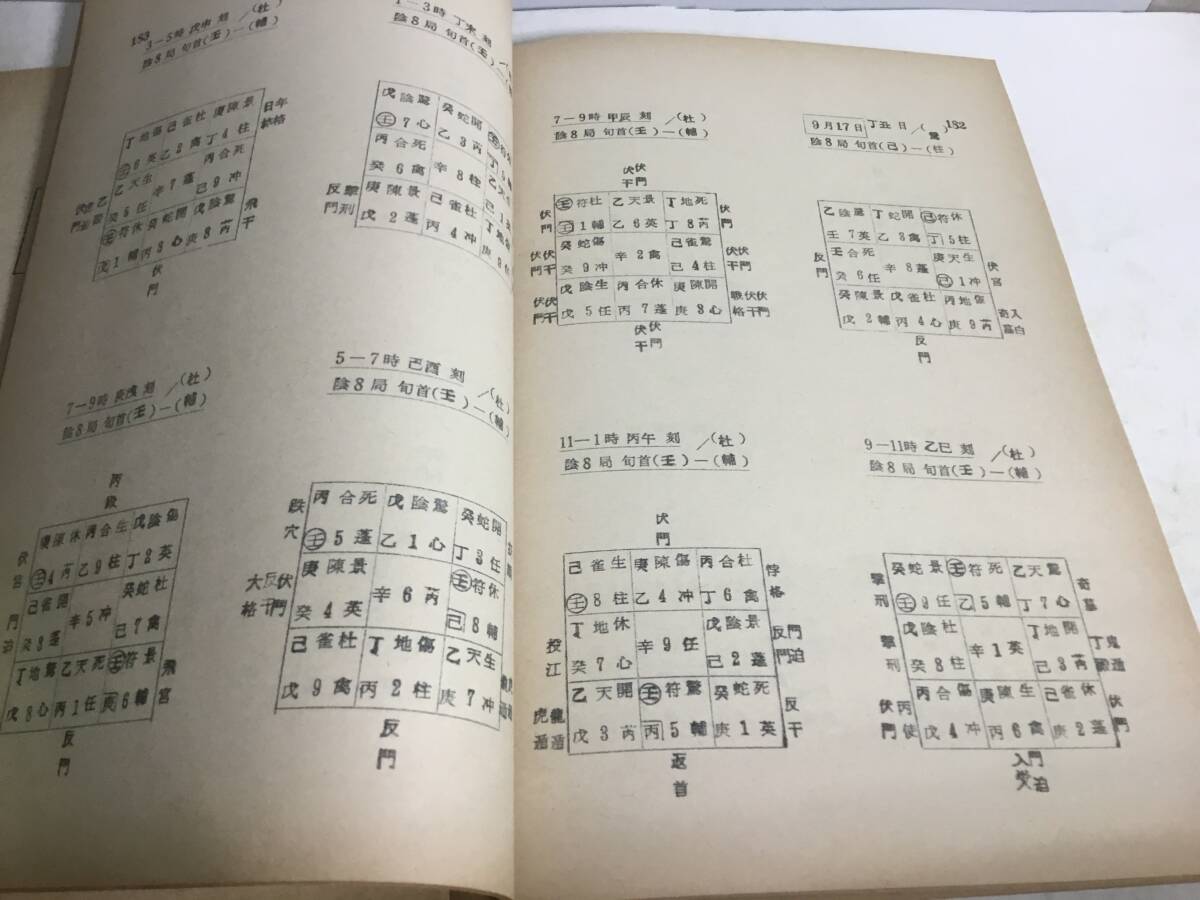 182
9月17日 丁丑日 /(驚)
陰8局 旬首(己)—(柱)
乙陰驚 丁蛇開 己符休
壬7英 乙3禽 丁5柱
壬合死 庚天生
癸6任 辛8蓬 己1冲
癸陳景 戊雀杜 丙地傷
戊2輔 丙4心 庚9芮
反門
伏宮
反門
7—9時 甲辰 刻 /(杜)
陰8局 旬首(壬)—(輔)
伏門
伏干
壬符杜 乙天景 丁地死
壬1輔 乙6英 丁8芮
癸蛇傷 己雀驚
癸9冲 辛2禽 己4柱
戊陰生 丙合休 庚陳開
戊5任 丙7蓬 庚3心
伏門
伏干
9—11時 乙巳 刻 /(杜)
陰8局 旬首(壬)—(輔)
癸蛇景 壬符死 乙天驚
壬9任 乙5輔 丁7心
戊陰杜 丁地開
癸8柱 辛1英 己3芮
丙合傷 庚陳生 己雀休
戊4冲 丙6禽 庚2蓬
撃刑
撃刑
伏門
丙使
奇墓
伏門
11—1時 丙午 刻 /(杜)
陰8局 旬首(壬)—(輔)
伏門
己雀生 庚陳傷 丙合杜
壬8柱 乙4冲 丁6禽
丁地休 戊陰景
癸7心 辛9任 己2蓬
乙天開 壬符驚 癸蛇死
戊3芮 丙5輔 庚1英
投江
龍遁
虎遁
悖格
門迫
反門
反干
返首
1—3時 丁未 刻
陰8局 旬首(壬)—(輔)
戊陰驚 癸蛇開
壬7心 乙3芮
丙合死
癸6禽 辛8柱
庚陳景 己雀杜
戊2蓬 丙4冲
撃刑
反門
183
3—5時 戊申 刻 /(杜)
陰8局 旬首(壬)—(輔)
丁地傷 己雀杜 庚陳景
壬6英 乙2禽 丁4柱
乙天生 丙合死
癸5任 辛7蓬 己9冲
壬符休 癸蛇開 戊陰驚
戊1輔 丙3心 庚8芮
年格
日格
飛干
伏門
5—7時 己酉 刻 /(杜)
陰8局 旬首(壬)—(輔)
丙合死 戊陰驚 癸蛇開
壬5蓬 乙1心 丁3任
庚陳景 壬符休
癸4英 辛6芮 己8輔
己雀杜 丁地傷 乙天生
戊9禽 丙2柱 庚7冲
跌穴
伏門
反干
大格
反門
7—9時 庚戌 刻 /(杜)
陰8局 旬首(壬)—(輔)
庚陳休 丙合生 戊陰傷
壬4芮 乙9柱 丁2英
己雀開 癸蛇杜
癸3蓬 辛5冲 己7禽
丁地驚 乙天死 壬符景
戊8心 丙1任 庚6輔
伏宮
門迫
飛宮
反門